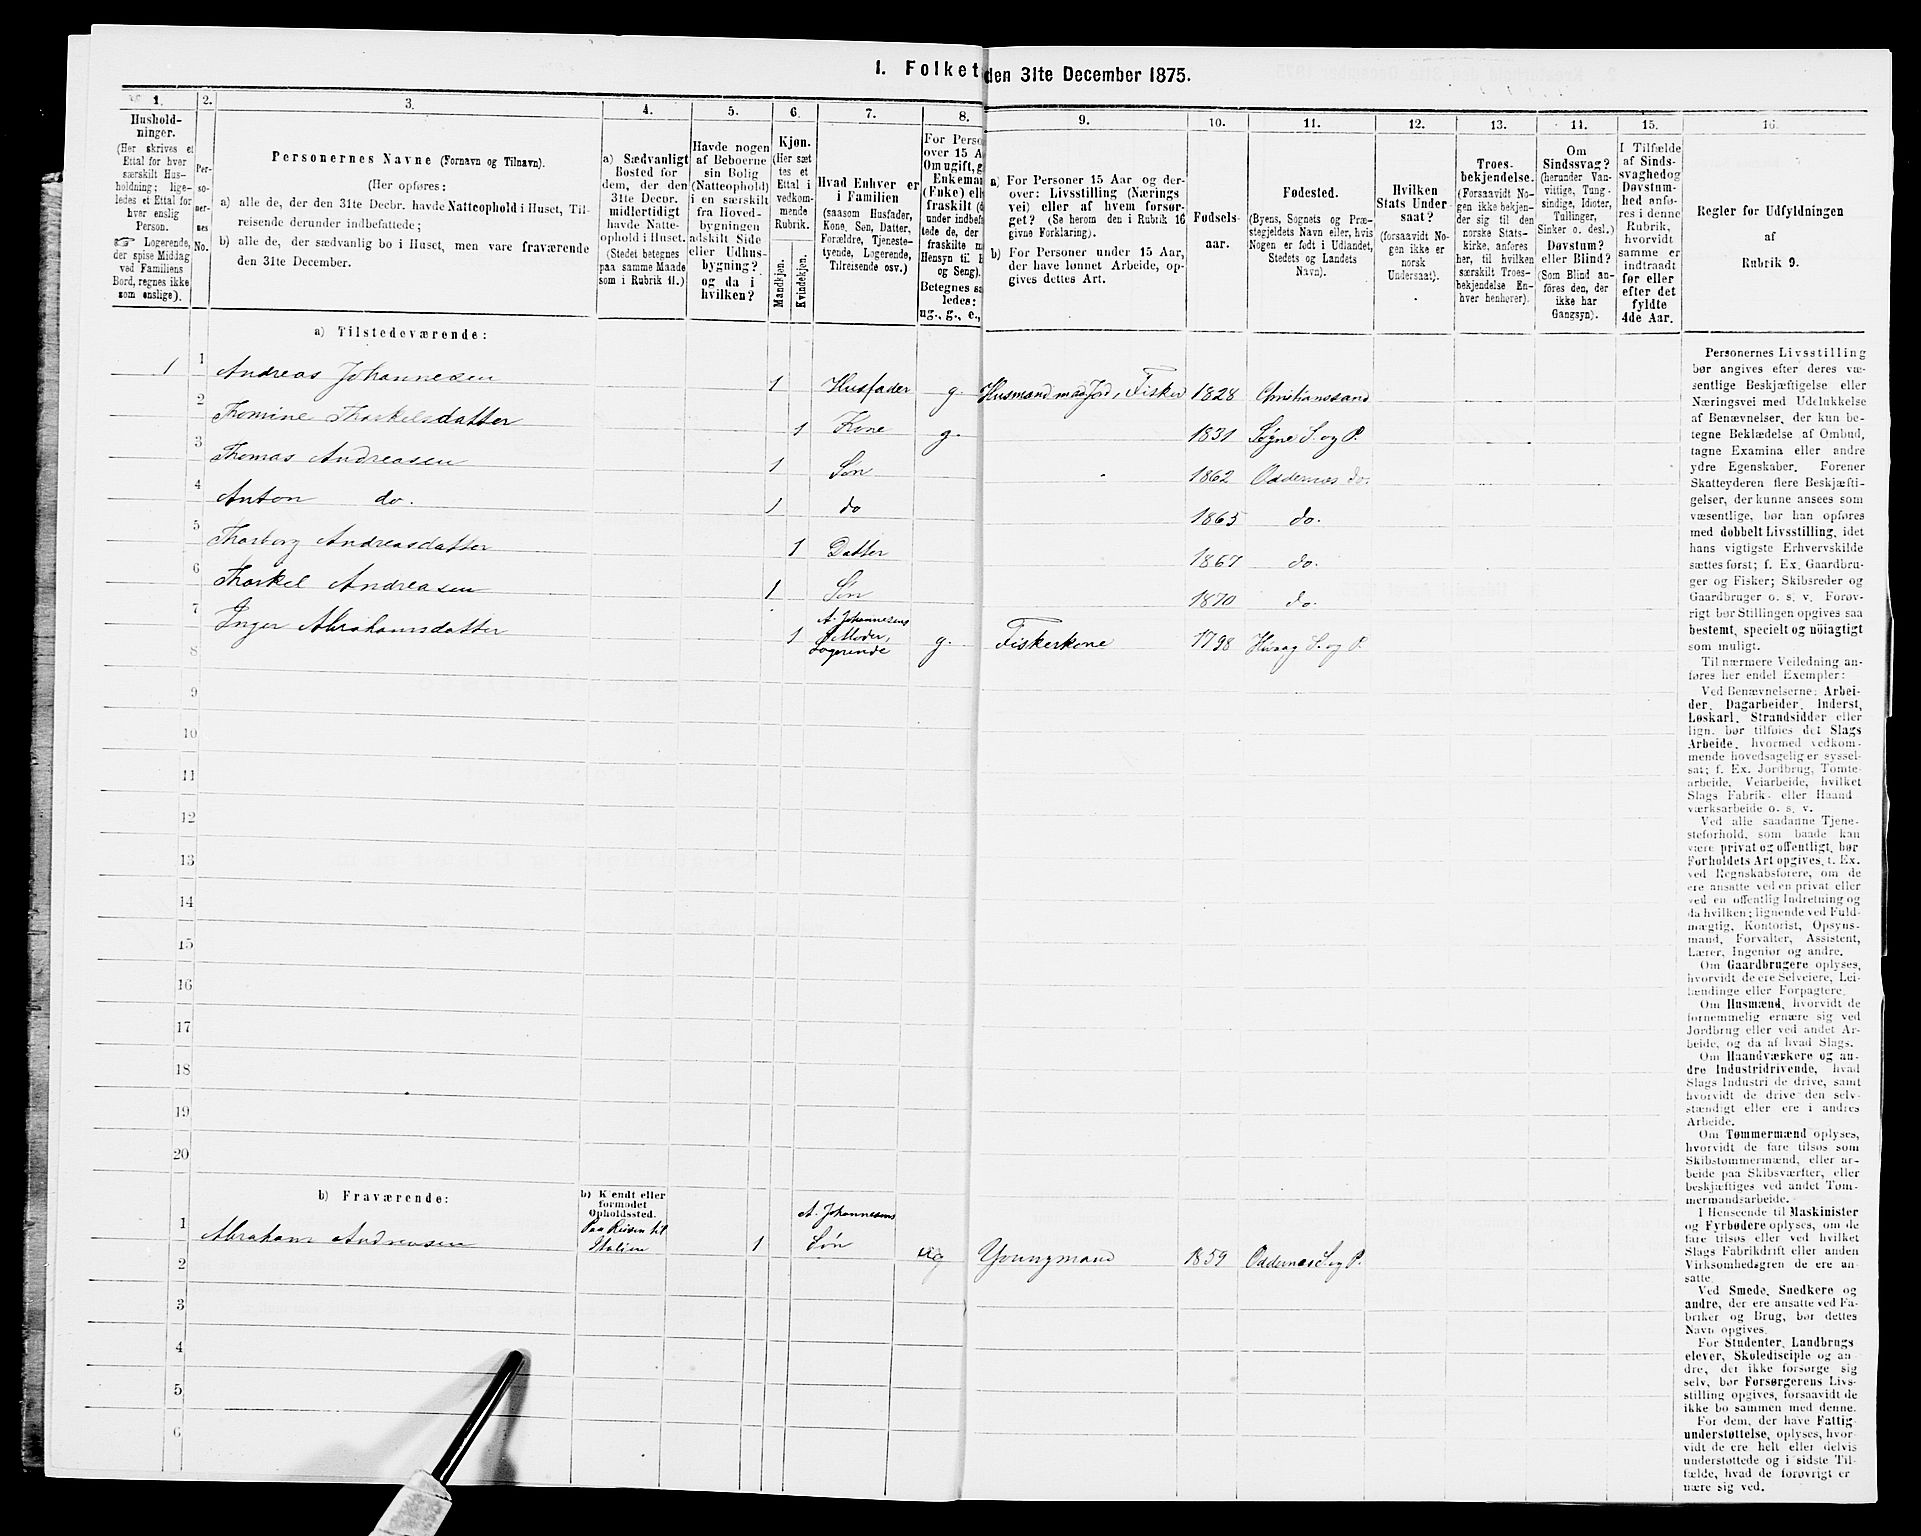 1. Folket
den 31te December 1875.
1.
Hushold-
ninger.
(Her skrives et
Ettal for hver
særskilt Hus-
holdning; lige-
ledes et Ettal for
hver enslig
Person.
☞ Logerende,
der spise Middag
ved Familiens
Bord, regnes ikke
som enslige).
2.
Per-
so-
ner-
nes
No.
3.
Personernes Navne (Fornavn og Tilnavn).
(Her opføres:
a) alle de, der den 31te Decbr. havde Natteophold i Huset, Til-
reisende derunder indbefattede;
b) alle de, der sædvanlig bo i Huset, men vare fraværende
den 31te December.
4.
a) Sædvanligt
Bosted for
dem, der den
31te Decbr.
midlertidigt
havde Natte-
ophold i Huset.
(Stedet betegnes
paa samme Maade
som i Rubrik 11.)
5.
Havde nogen
af Beboerne
sin Bolig
(Natteophold)
i en særskilt
fra Hoved-
bygningen
adskilt Side
eller Udhus-
bygning?
og da i
hvilken?
6.
Kjøn.
(Her sæt
tes et
Ettal i
vedkom-
mende
Rubrik.
Mandkjøn.
Kvindekjøn.
7.
Hvad Enhver er
i Familien
(saasom Husfader,
Kone, Søn, Datter,
Forældre, Tjeneste-
tyende, Logerende,
Tilreisende osv.)
8.
For Perso
over 15 A
Om ugift, g
Enkeman
(Enke) ell
fraskilt (d
under indbefa
tede de, der
fraskilte m
Hensyn til B
og Seng).
Betegnes sa
ledes:
ug., g., e.,
9.
a) For Personer 15 Aar og der-
over: Livsstilling (Nærings
vei) eller af hvem forsør-
get? (Se herom den i Rubrik 16
givne Forklaring).
b) For Personer under 15 Aar,
der have lønnet Arbeide, op-
gives dettes Art.
10.
Fødsels-
aar.
11.
Fødested.
(Byens, Sognets og Præ-
stegjeldets Navn eller, hvis
Nogen er født i Udlandet,
Stedets og Landets
Navn).
12.
Hvilken
Stats Under-
saat?
(forsaavidt No-
gen ikke er
norsk
Undersaat).
13.
Troes-
bekjendelse.
(Forsaavidt No-
gen ikke bekjen-
der sig til den
norske Stats-
kirke, anføres
her, til hvilken
særskilt Troes-
bekjendelse En-
hver henhører).
14.
Om
Sindssvag?
(herunder Van-
vittige, Tung-
sindige, Idioter,
Tullinger,
Sinker o. desl.)
Døvstum?
eller Blind?
(Som Blind an-
føres den, der
ikke har
Gangsyn).
15.
I Tilfælde
af Sinds-
svaghed og
Døvstum-
hed anfø-
res i denne
Rubrik,
hvorvidt
samme er
indtraadt
før eller
efter det
fyldte
4de Aar.
16.
Regler for Udfyldningen
af
Rubrik 9.
a) Tilstedeværende:
1 1 Andreas Johannesen 1 Husfader g. Husmand med Jord, Fisker 1828 Christianssand
2 Thomine Thorkelsdatter 1 Kone g. 1831 Søgne S. og P.
3 Thomas Andreasen 1 Søn 1862 Oddernes do.
4 Anton do. 1 do 1865 do.
5 Thorborg Andreasdatter 1 Datter 1867 do.
6 Thorkel Andreasen 1 Søn 1870 do.
7 Inger Abrahamsdatter 1 A. Johannesens Moder, Logerende g. Fiskerkone 1798 S. og P.
8
9
10
11
12
13
14
15
16
17
18
19
20
b) Fraværende:
b) Kjendt eller
formodet
Opholdssted.
1 Abraham Andreasen Paa Reisen til Italien 1 A. Johannesens Søn ug Youngmand 1859 Oddernes S. og P.
2
3
4
5
6
Personernes Livsstilling
bør angives efter deres væ-
sentlige Beskjæftigelse eller
Næringsvei med Udelukkelse
af Benævnelser, der kun be-
tegne Beklædelse af Ombud,
tagne Examina eller andre
ydre Egenskaber. Forener
Skatteyderen flere Beskjæfti-
gelser, der kunne ansees som
væsentlige, bør han opføres
med dobbelt Livsstilling, idet
hans vigtigste Erhvervskilde
sættes først; f. Ex. Gaardbru-
ger og Fisker; Skibsreder og
Gaardbruger o. s. v. Forøv-
rigt bør Stillingen opgives saa
bestemt, specielt og nöiagtigt
som muligt.
Til nærmere Veiledning an-
føres her endel Exempler:
Ved Benævnelserne: Arbei-
der, Dagarbeider, Inderst,
Løskarl, Strandsidder eller
lign. bør tilføies det Slags
Arbeide, hvormed vedkom-
mende hovedsagelig er syssel-
sat; f. Ex. Jordbrug, Tomte-
arbeide, Veiarbeide, hvilket
Slags Fabrik- eller Haand-
værksarbeide o. s. v.
Ved alle saadanne Tjene-
steforhold, som baade kan
være privat og offentligt, bør
Forholdets Art opgives, t. Ex.
ved Regnskabsførere, om de
ere ansatte ved en privat eller
ved en offentlig Indretning og
da hvilken; lignende ved Fuld-
mægtig, Kontorist, Opsyns-
mand, Forvalter, Assistent,
Lærer, Ingeniør og andre.
Om Gaardbrugere oplyses,
hvorvidt de ere Selveiere, Lei-
lændinge eller Forpagtere.
Om Husmænd, hvorvidt de
fornemmelig ernære sig ved
Jordbrug eller ved andet Ar-
beide, og da af hvad Slags.
Om Haandværkere og an-
dre Industridrivende, hvad
Slags Industri de drive, samt
hvorvidt de drive den selv-
stændigt eller ere i andres
Arbeide.
Om Tømmermænd oplyses,
hvorvidt de fare tilsøs som
Skibstømmermænd, eller ar-
beide paa Skibsværfter, eller
beskjæftiges ved andet Tøm-
mermandsarbeide.
I Henseende til Maskinister
og Fyrbødere oplyses, om de
fare tilsøs eller ved hvilket
Slags Fabrikdrift eller anden
Virksomhedsgren de ere an-
satte.
Ved Smede, Snedkere og
andre, der ere ansatte ved Fa-
briker og Brug, bør dettes
Navn opgives.
For Studenter, Landbrugs
elever, Skoledisciple og an-
dre, der ikke forsørge sig
selv, bør Forsørgerens Livs-
stilling opgives, forsaavidt de
ikke bo sammen med denne.
For dem, der have Fattig-
understøttelse, oplyses, hvor-
vidt de ere helt eller delvis
understøttede og i sidste Til-
fælde, hvad de forøvrigt er
nære sig ved.